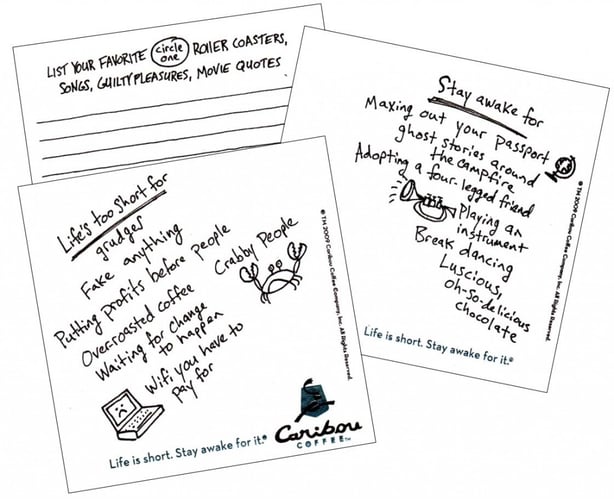 LIST YOUR FAVORITE circle one ROLLER COASTERS,
SONGS, GUILTY PLEASURES, MOVIE QUOTES
Stay awake for
Maxing out your passport
ghost stories around
the campfire
Adopting a four-legged friend
Playing an
instrument
Break dancing
Luscious,
oh-so-delicious
chocolate
Life is short. Stay awake for it.®
®TM 2009 Caribou Coffee Company, Inc. All Rights Reserved.
Life's too short for
grudges
Fake anything
Putting profits before people
Over-roasted coffee
Crabby People
Waiting for change
to happen
Wifi you have to
pay for
Life is short. Stay awake for it.®
Caribou
COFFEE™
®TM 2009 Caribou Coffee Company, Inc. All Rights Reserved.